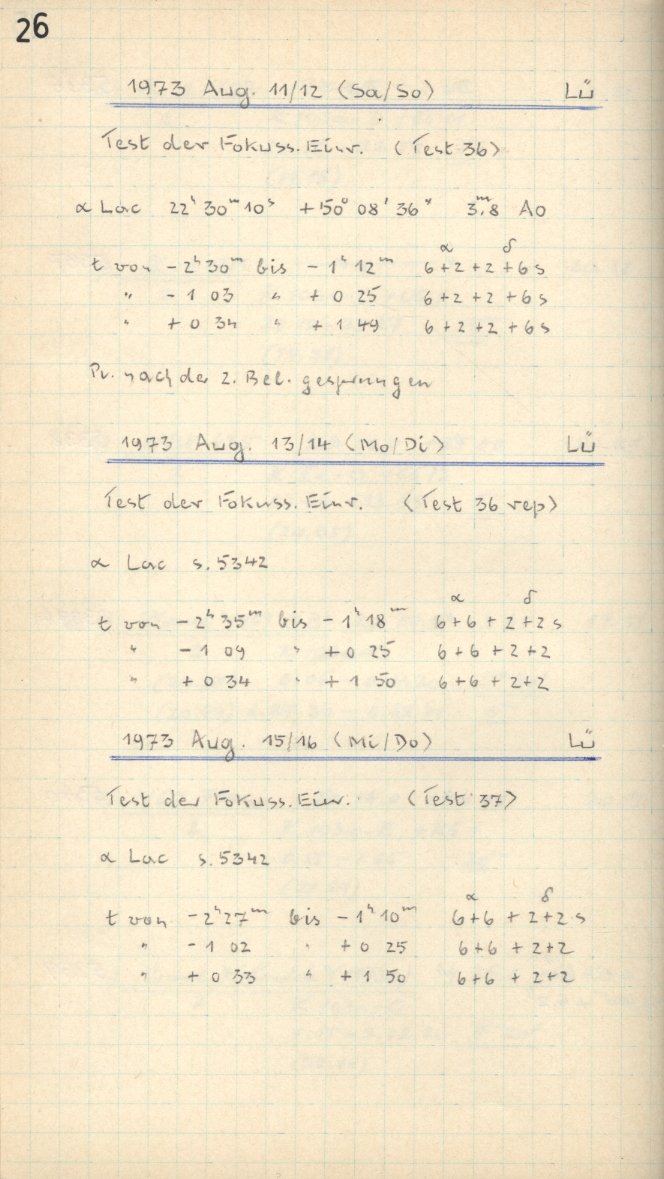 26
1973 Aug. 11/12 (Sa/So) Lü
Test der Fokuss. Einr. (Test 36)
α Lac 22ʰ 30ᵐ 10ˢ +50° 08' 36" 3ᵐ.8 A0
α δ
t von -2ʰ 30ᵐ bis -1ʰ 12ᵐ 6+2+2+6s
" -1 03 " +0 25 6+2+2+6s
" +0 34 " +1 49 6+2+2+6s
Pl. nach der 2. Bel. gesprungen
1973 Aug. 13/14 (Mo/Di) Lü
Test der Fokuss. Einr. (Test 36 rep)
α Lac s. 5342
α δ
t von -2ʰ 35ᵐ bis -1ʰ 18ᵐ 6+6+2+2s
" -1 09 " +0 25 6+6+2+2
" +0 34 " +1 50 6+6+2+2
1973 Aug. 15/16 (Mi/Do) Lü
Test der Fokuss. Einr. (Test 37)
α Lac s. 5342
α δ
t von -2ʰ 27ᵐ bis -1ʰ 10ᵐ 6+6+2+2s
" -1 02 " +0 25 6+6+2+2
" +0 33 " +1 50 6+6+2+2